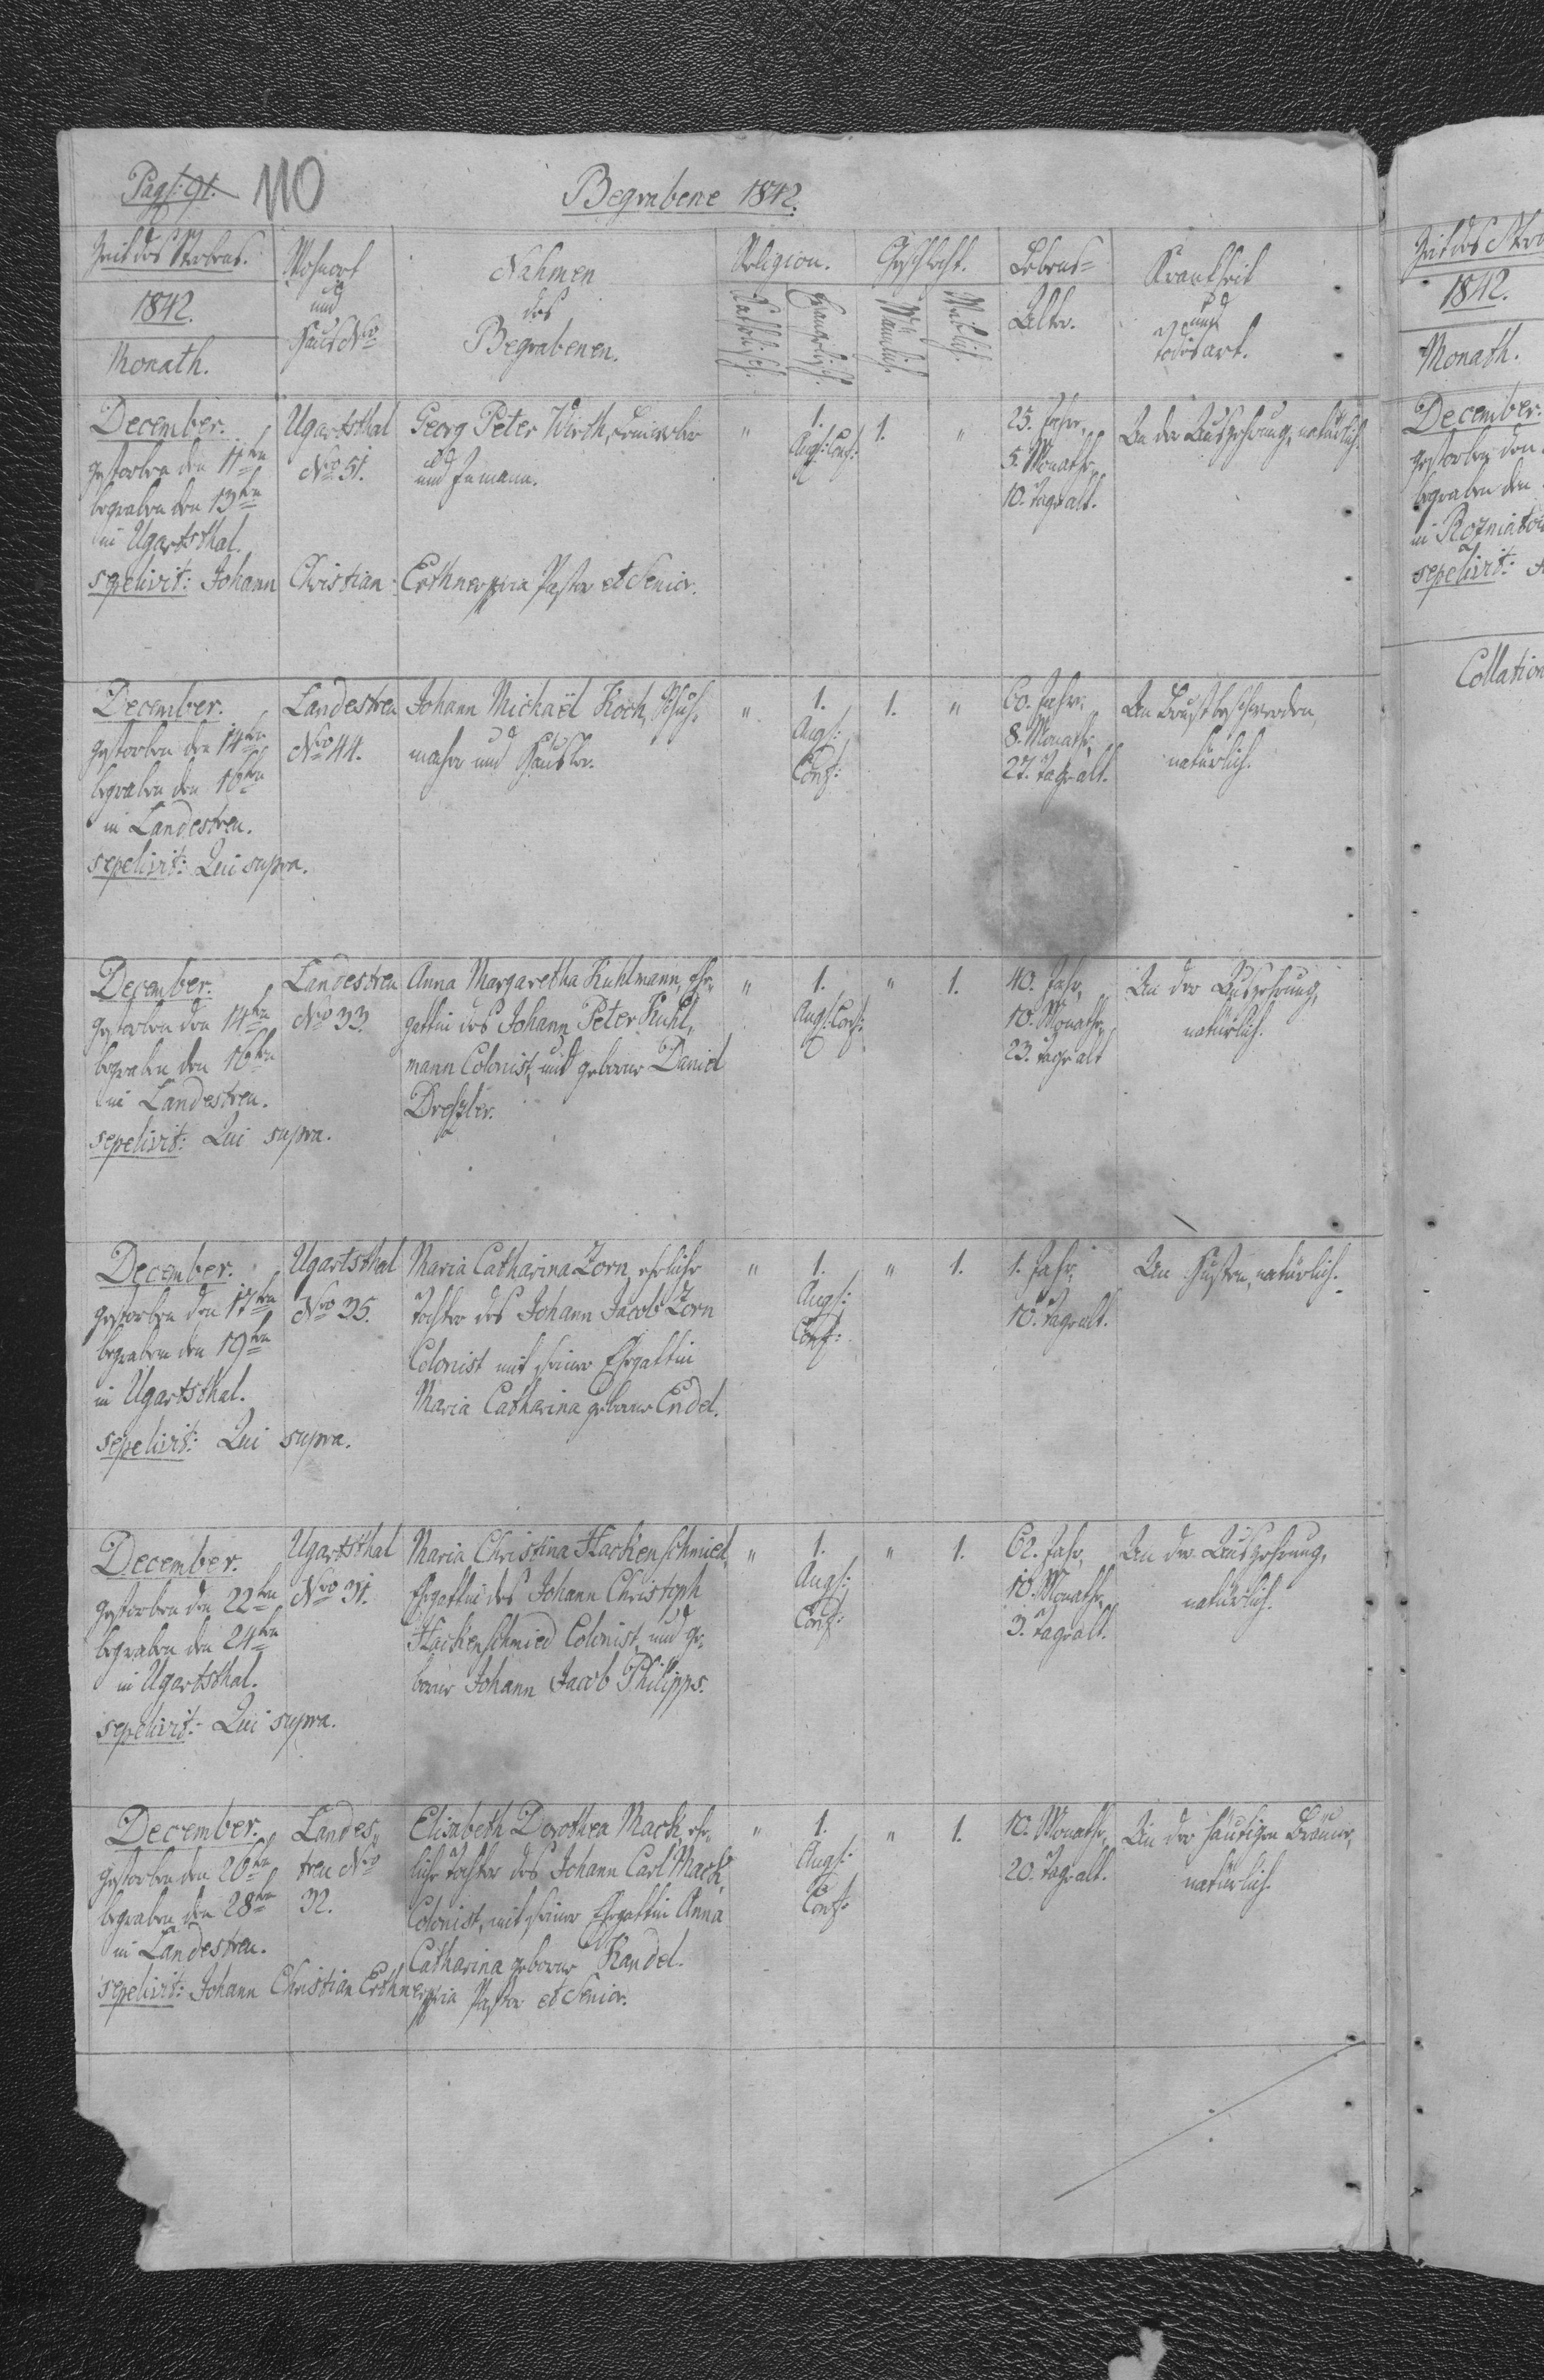 Pag: 91. 110
Begrabene 1842.
Zeit des Sterbens.
1842.
Monath.
Wohnort
und
Haus Nro
Nahmen
des
Begrabenen.
Religion.
Katholisch.
Evangelisch.
Geschlecht.
Männlich.
Weiblich.
Lebens=
Alter.
Krankheit
und
Todesart.
December.
gestorben den 11ten
begraben den 13ten
in Ugartsthal.
Ugartsthal
Nro 51.
Georg Peter Wirth,
und Inmann.
"
1.
Augs: Conf:
1.
"
25. Jahr,
5. Monathe,
10. Tage alt.
An der Auszehrung, natürlich.
sepelivit: Johann Christian Erthner mpria Pastor et Senior.
December.
gestorben den 14ten
begraben den 16ten
in Landestreu.
Landestreu
Nro 44.
Johann Michaël Koch, Schuh,
macher und Häusler.
"
1.
Augs:
Conf:
1.
"
60. Jahr,
8. Monathe,
27. Tage alt.
An Brustbeschwerden,
natürlich.
sepelivit: Qui supra.
December.
gestorben den 14ten
begraben den 16ten
in Landestreu.
Landestreu
Nro 33.
Anna Margaretha Kuhlmann, Ehe,
gattin des Johann Peter Kuhl,
mann Colonist, und geborne Daniel
Dreßler.
"
1.
Augs: Conf:
"
1.
40. Jahr,
10. Monathe,
23. Tage alt
An der Auszehrung,
natürlich.
sepelivit: Qui supra.
December.
gestorben den 17ten
begraben den 19ten
in Ugartsthal.
Ugartsthal
Nro 35.
Maria Catharina Zorn, eheliche
Tochter des Johann Jacob Zorn
Colonist mit seiner Ehegattin
Maria Catharina geborne Endel.
"
1.
Augs:
Conf:
"
1.
1. Jahr,
10. Tage alt.
An Husten, natürlich.
sepelivit: Qui supra.
December.
gestorben den 22ten
begraben den 24ten
in Ugartsthal.
Ugartsthal
Nro 31.
Maria Christina Hackenschmied,
Ehegattin des Johann Christoph
Hackenschmied Colonist, und ge,
borne Johann Jacob Philipps.
"
1.
Augs:
Conf:
"
1.
62. Jahr,
10. Monathe,
3. Tage alt.
An der Auszehrung,
natürlich.
sepelivit: Qui supra.
December.
gestorben den 26ten
begraben den 28ten
in Landestreu.
Landes,
treu Nro
32.
Elisabeth Dorothea Mack, ehe,
liche Tochter des Johann Carl Mack,
Colonist, mit seiner Ehegattin Anna
Catharina geborne Kandel.
"
1.
Augs:
Conf:
"
1.
10. Monathe,
20. Tage alt.
An der häutigen Bräune,
natürlich.
sepelivit: Johann Christian Erthner mpria Pastor et Senior.
1842.
Monath.
December.
gestorben den
begraben den
sepelivit: